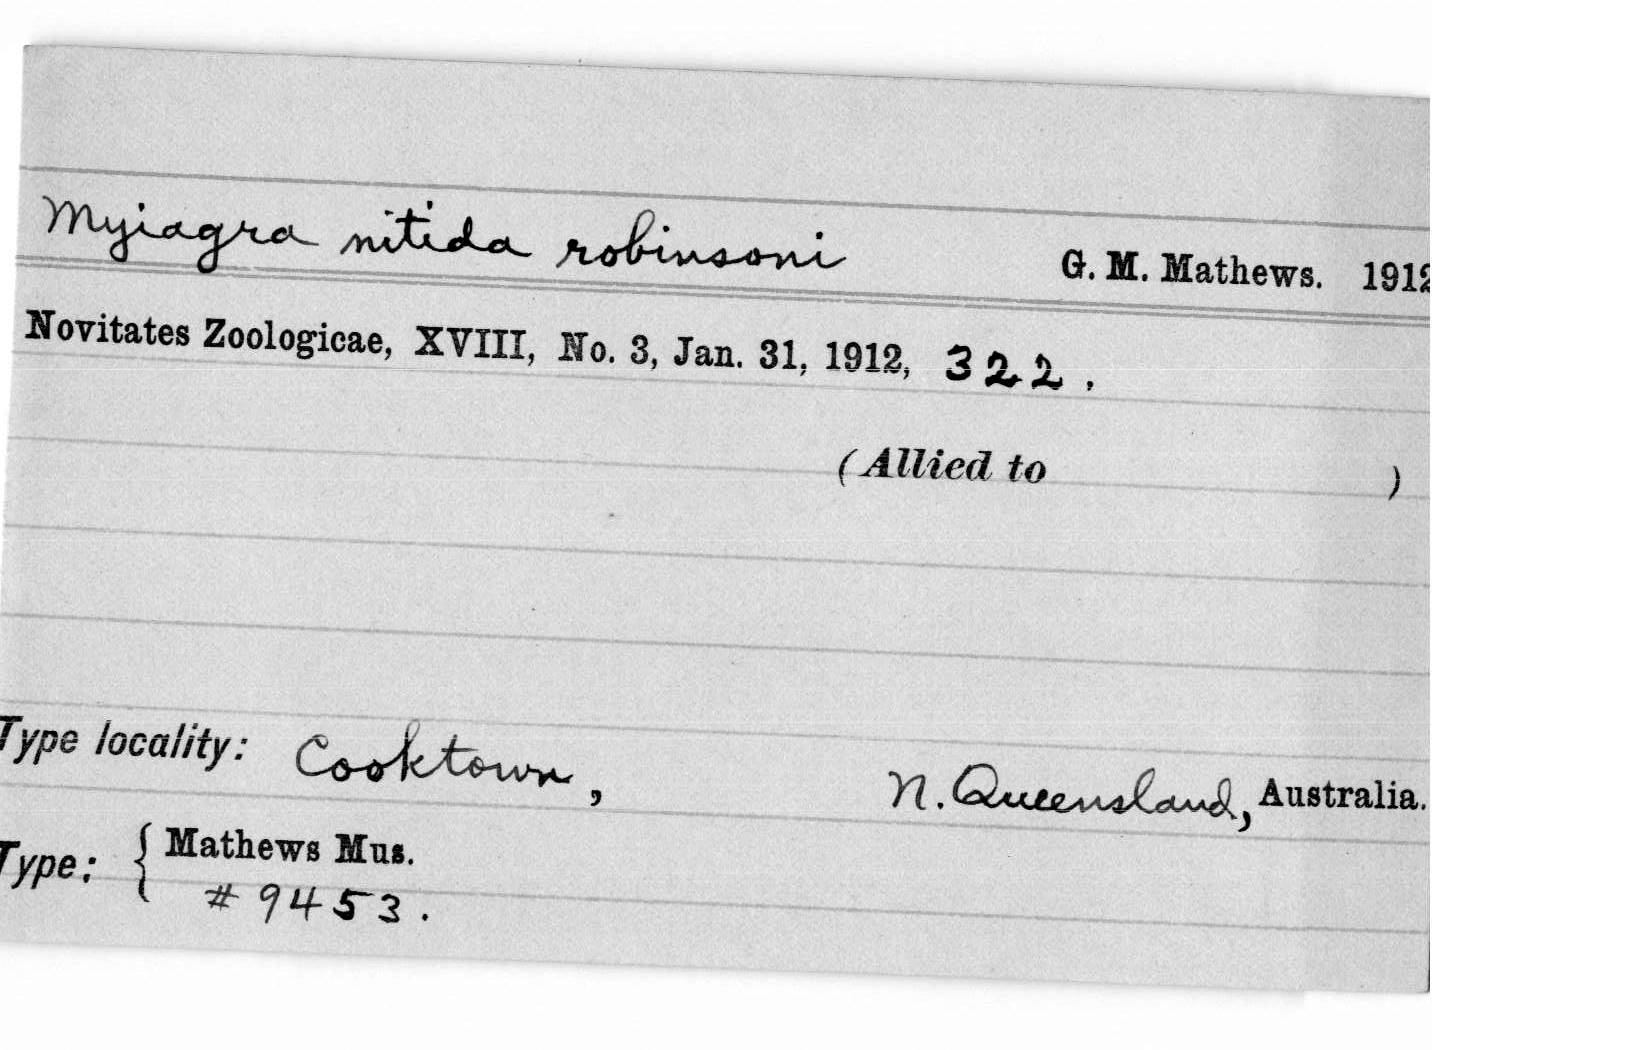 Myiagra nitida robinsoni G. M. Mathews. 1912
Novitates Zoologicae, XVIII, No. 3, Jan. 31, 1912, 322.
(Allied to )
Type locality: Cooktown, N. Queensland, Australia.
Type: { Mathews Mus.
# 9453.